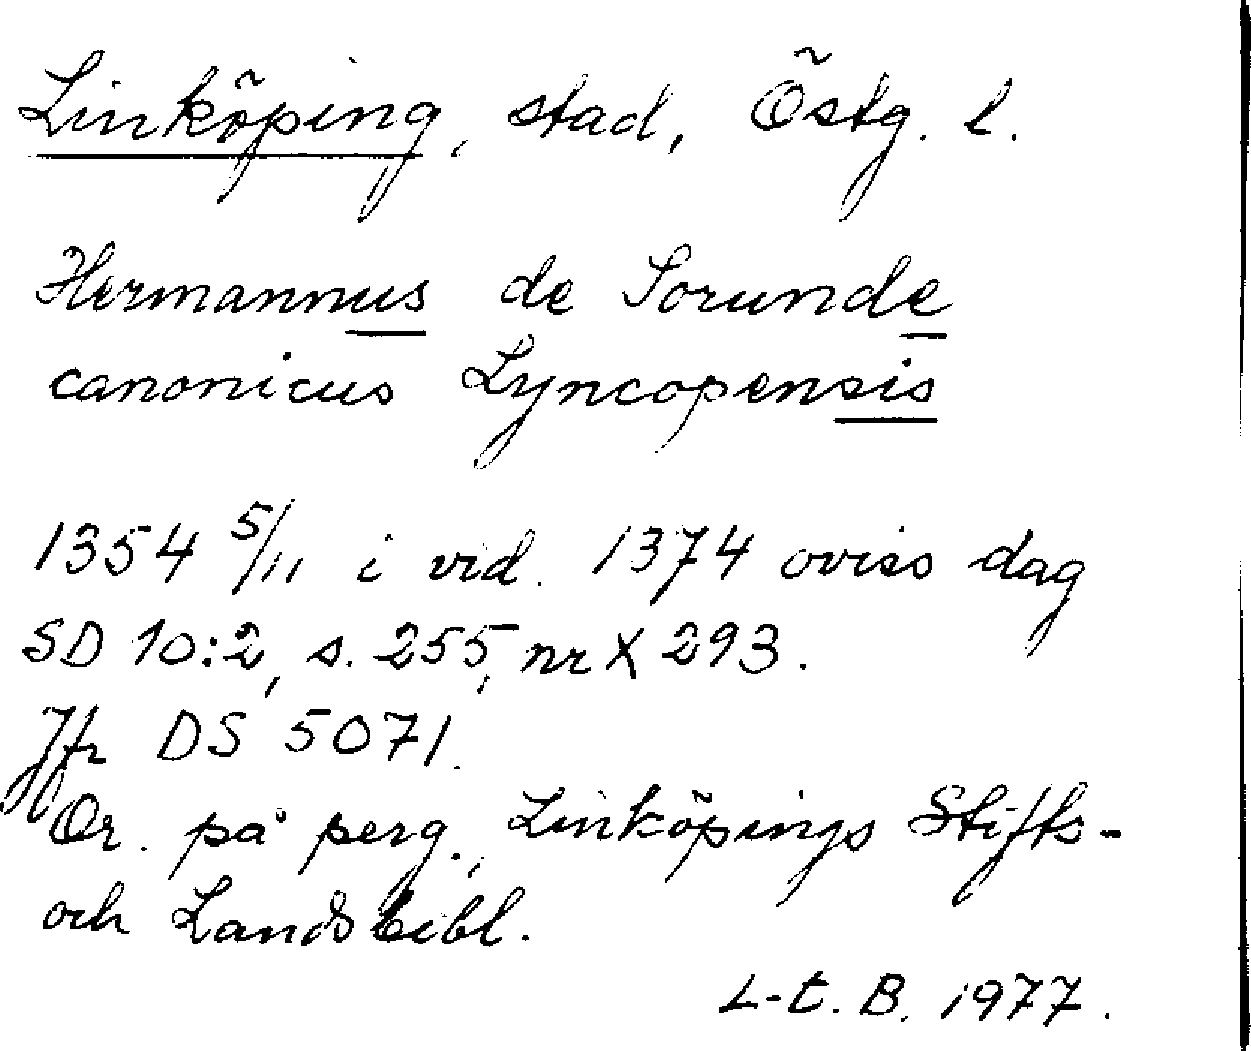 Linköping, stad, Östg. l.
Hermannus de Sorunde
canonicus Lyncopensis
1354 5/11 i vid. 1374 oviss dag
SD 10:2, s. 255, nr X 293.
Jfr DS 5071.
Or. på perg., Linköpings Stifts-
och Landsbibl.
L-t. B. 1977.